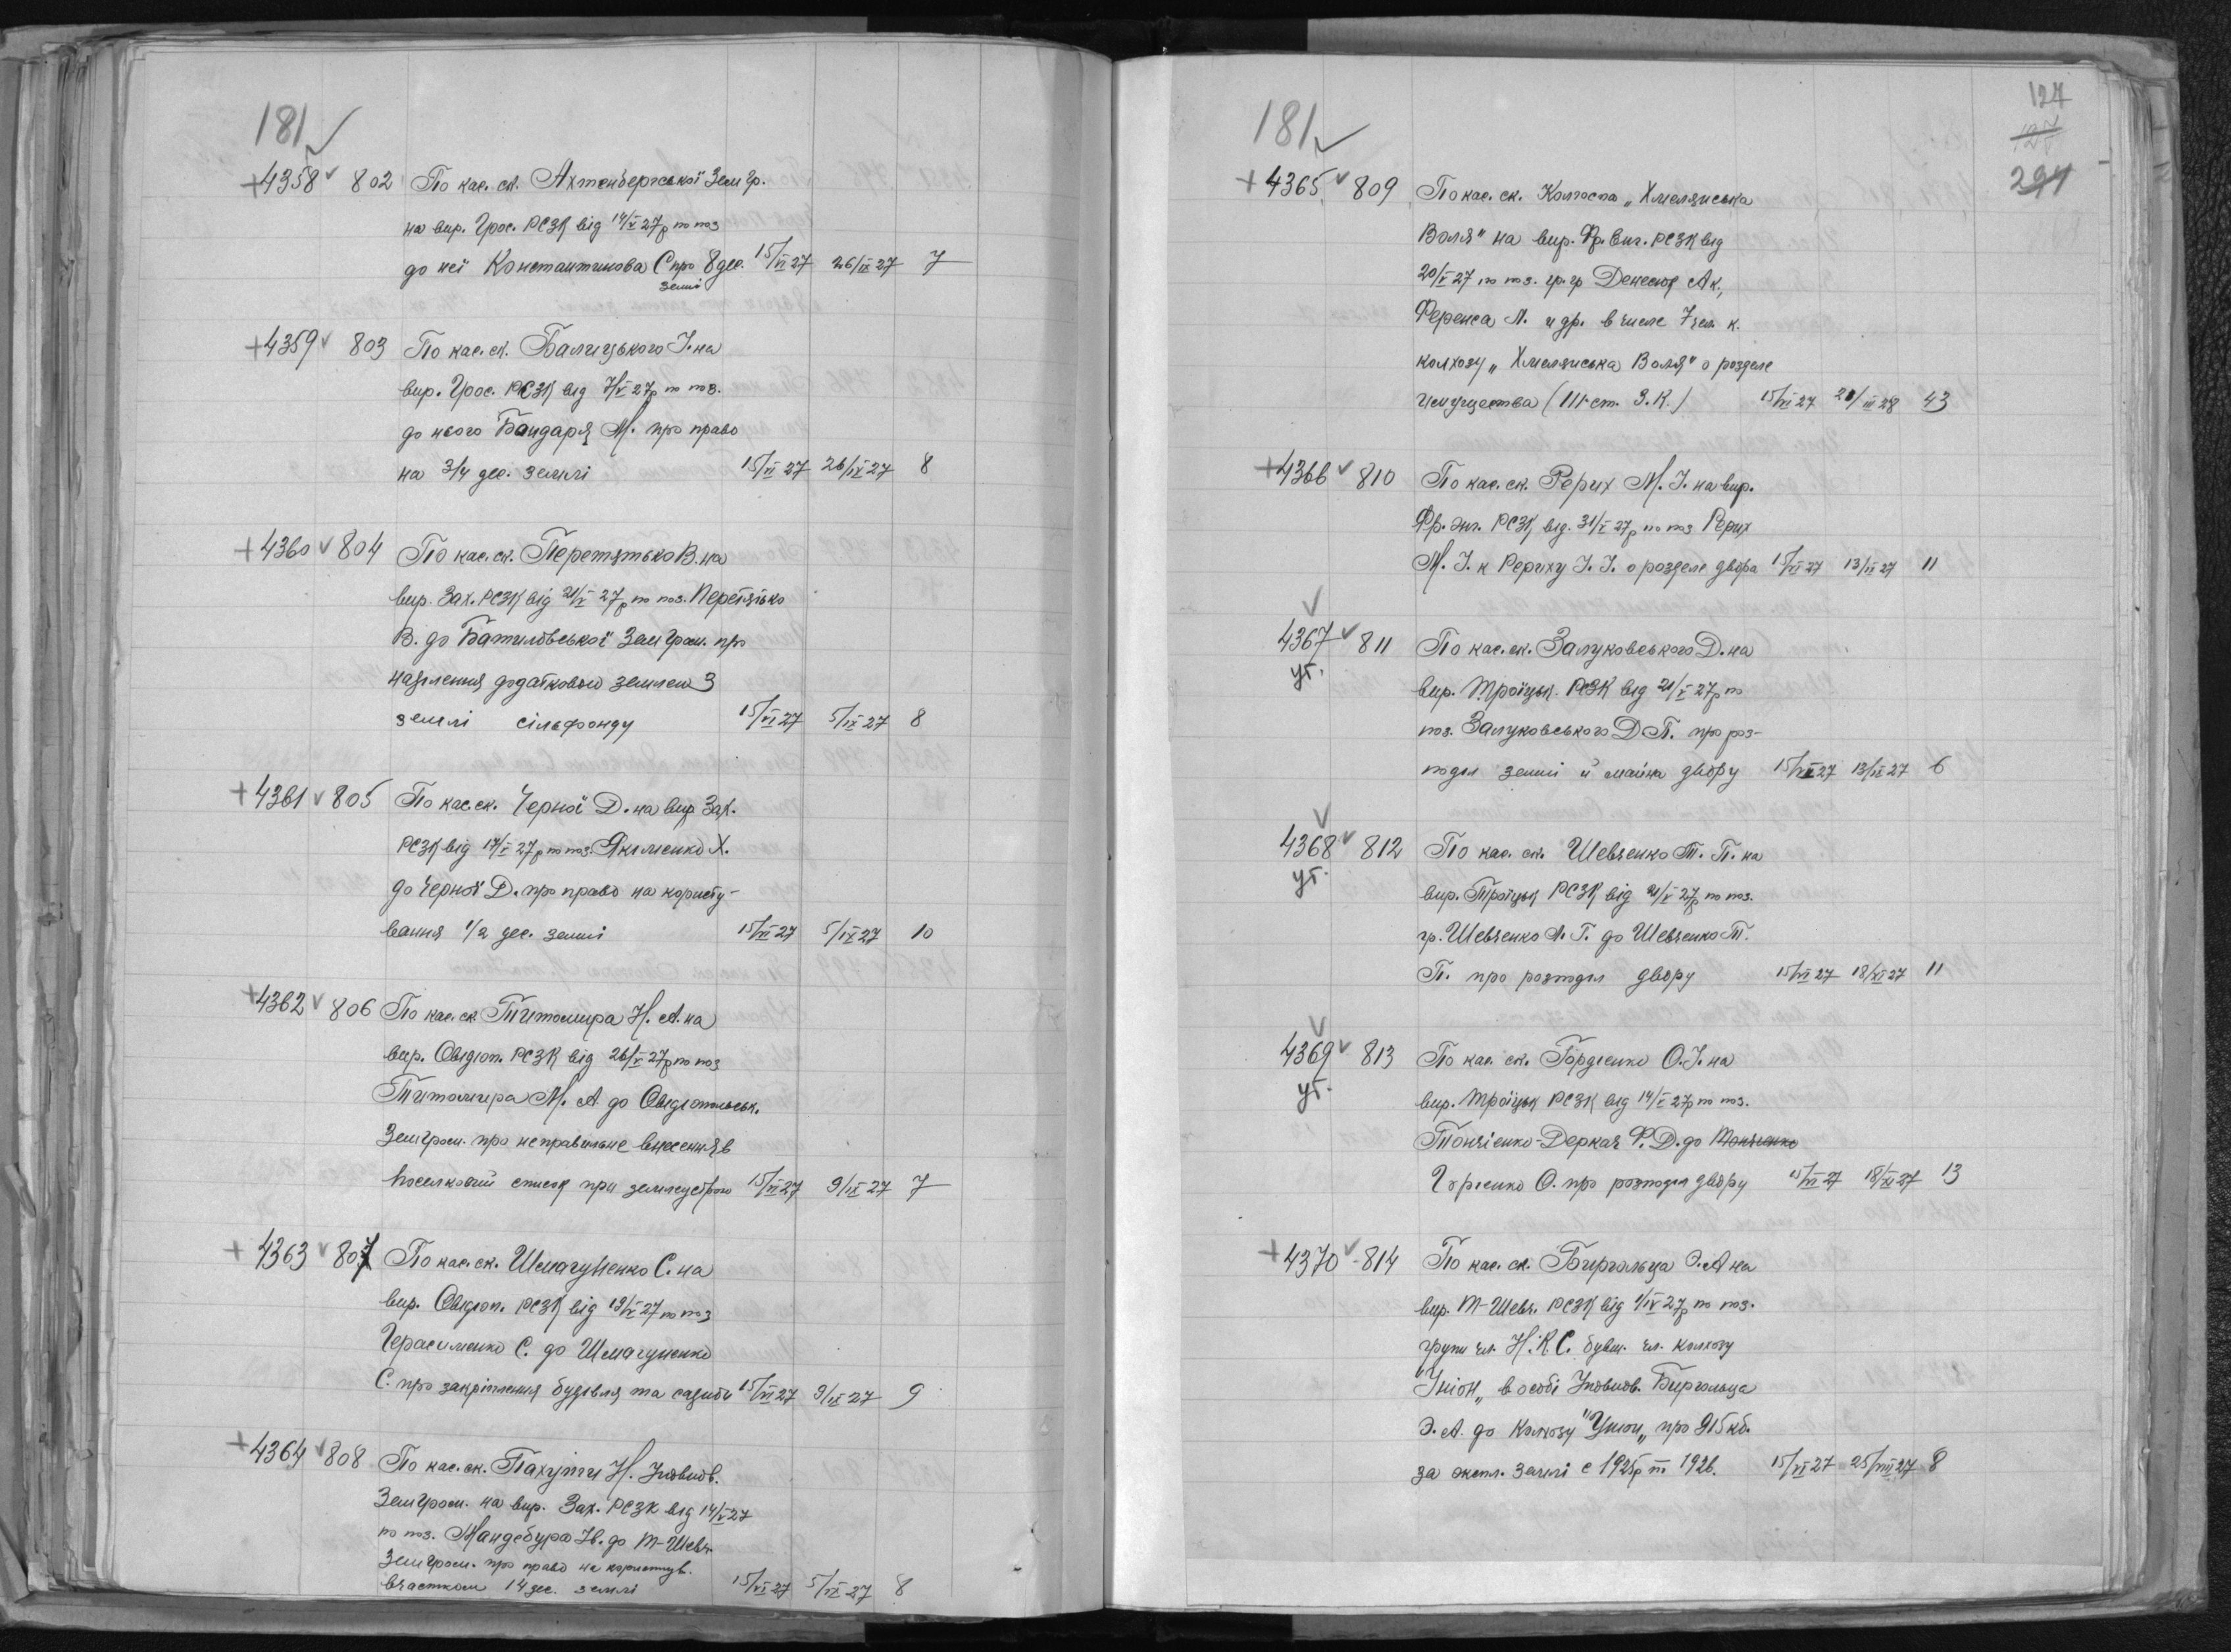 181 ✓
+4358 ✓ 802 По кас. ск. Ахтенбергської Зем гр.
на вир. Грос. РСЗК від 14/V 27р по поз
до неї Константинова С про 8 дес. землі 15/VI 27 26/IX 27 7
+4359 ✓ 803 По кас. ск. Балицького І. на
вир. Грос. РСЗК від 7/V 27р по поз.
до нього Бандаря М. про право
на 3/4 дес. землі 15/VI 27 26/IX 27 8
+4360 ✓ 804 По кас. ск. Перетятько В. на
вир. Зах. РСЗК від 21/V 27р по поз. Перетятько
В. до Батиловської Зем Гром. про
наділення додатковою землею З
землі сільфонду 15/VI 27 5/IX 27 8
+4361 ✓ 805 По кас. ск. Черної Д. на вир Зах.
РСЗК від 17/V 27р по поз. Якименко Х.
до Черної Д. про право на користу-
вання 1/2 дес. землі 15/VI 27 5/IX 27 10
+4362 ✓ 806 По кас. ск. Титомира Н. А. на
вир. Овідіоп. РСЗК від 26/V 27р по поз
Титомира М. А. до Овідіопольськ.
Земгром. про неправильне внесення в
поселковий список при землеустрою 15/VI 27 9/IX 27 7
+4363 ✓ 807 По кас. ск. Шмагуненко С. на
вир. Овідіоп. РСЗК від 19/V 27 по поз
Герасименко С. до Шмагуненко
С. про закріплення будівля та садиби 15/VI 27 9/IX 27 9
+4364 ✓ 808 По кас. ск. Пахути Н. Уповнов.
Земгром. на вир. Зах. РСЗК від 14/V 27
по поз. Мандебура Ів. до Т-Шевч.
Земгром. про право на користув.
участком 14 дес. землі 15/VI 27 5/IX 27 8
181 ✓
127
127
294
+4365 ✓ 809 По кас. ск. Колгоспа „Хмелянська
Воля" на вир. Фр. Енг. РСЗК від
20/V 27 по поз. гр. гр Денесюк Ак.,
Ференса А. и др. в числе 7 чел. к.
колхозу „Хмелянська Воля" о розделе
имущества (111 ст. З. К.) 15/VI 27 21/III 28 43
+4366 ✓ 810 По кас. ск. Рерих М. І. на вир.
Фр. Энг. РСЗК від. 31/V 27р по поз Рерих
М. І. к Рериху І. І. о розделе двора 15/VI 27 13/IX 27 11
✓
4367 ✓ 811 По кас. ск. Залуковського Д. на
ут. вир. Троїцьк. РСЗК від 21/V 27р по
поз. Залуковського Д П. про роз-
поділ землі й майна двору 15/VI 27 13/IX 27 6
✓
4368 ✓ 812 По кас. ск. Шевченко Т. П. на
ут. вир. Троїцьк РСЗК від 21/V 27р по поз.
гр. Шевченко А. Г. до Шевченко Т.
П. про розподіл двору 15/VI 27 18/XI 27 11
✓
4369 ✓ 813 По кас. ск. Гордієнко О. І. на
ут. вир. Троїцьк РСЗК від 14/V 27р по поз.
Тончієнко-Деркач Ф. Д. до Тончієнко
Горієнко О. про розподіл двору 15/VI 27 18/XI 27 13
+4370 ✓ 814 По кас. ск. Биргольца Э. А на
вир. Т-Шевч. РСЗК від 1/IV 27р по поз.
групи чл. Н. К. С. бувш. чл. колхозу
"Уніон„ в особі Уповнов. Биргольца
Э. А. до Колхозу "Уніон„ про 915 кб.
за экспл. землі с 1925р по 1926. 15/VI 27 25/VIII 27 8